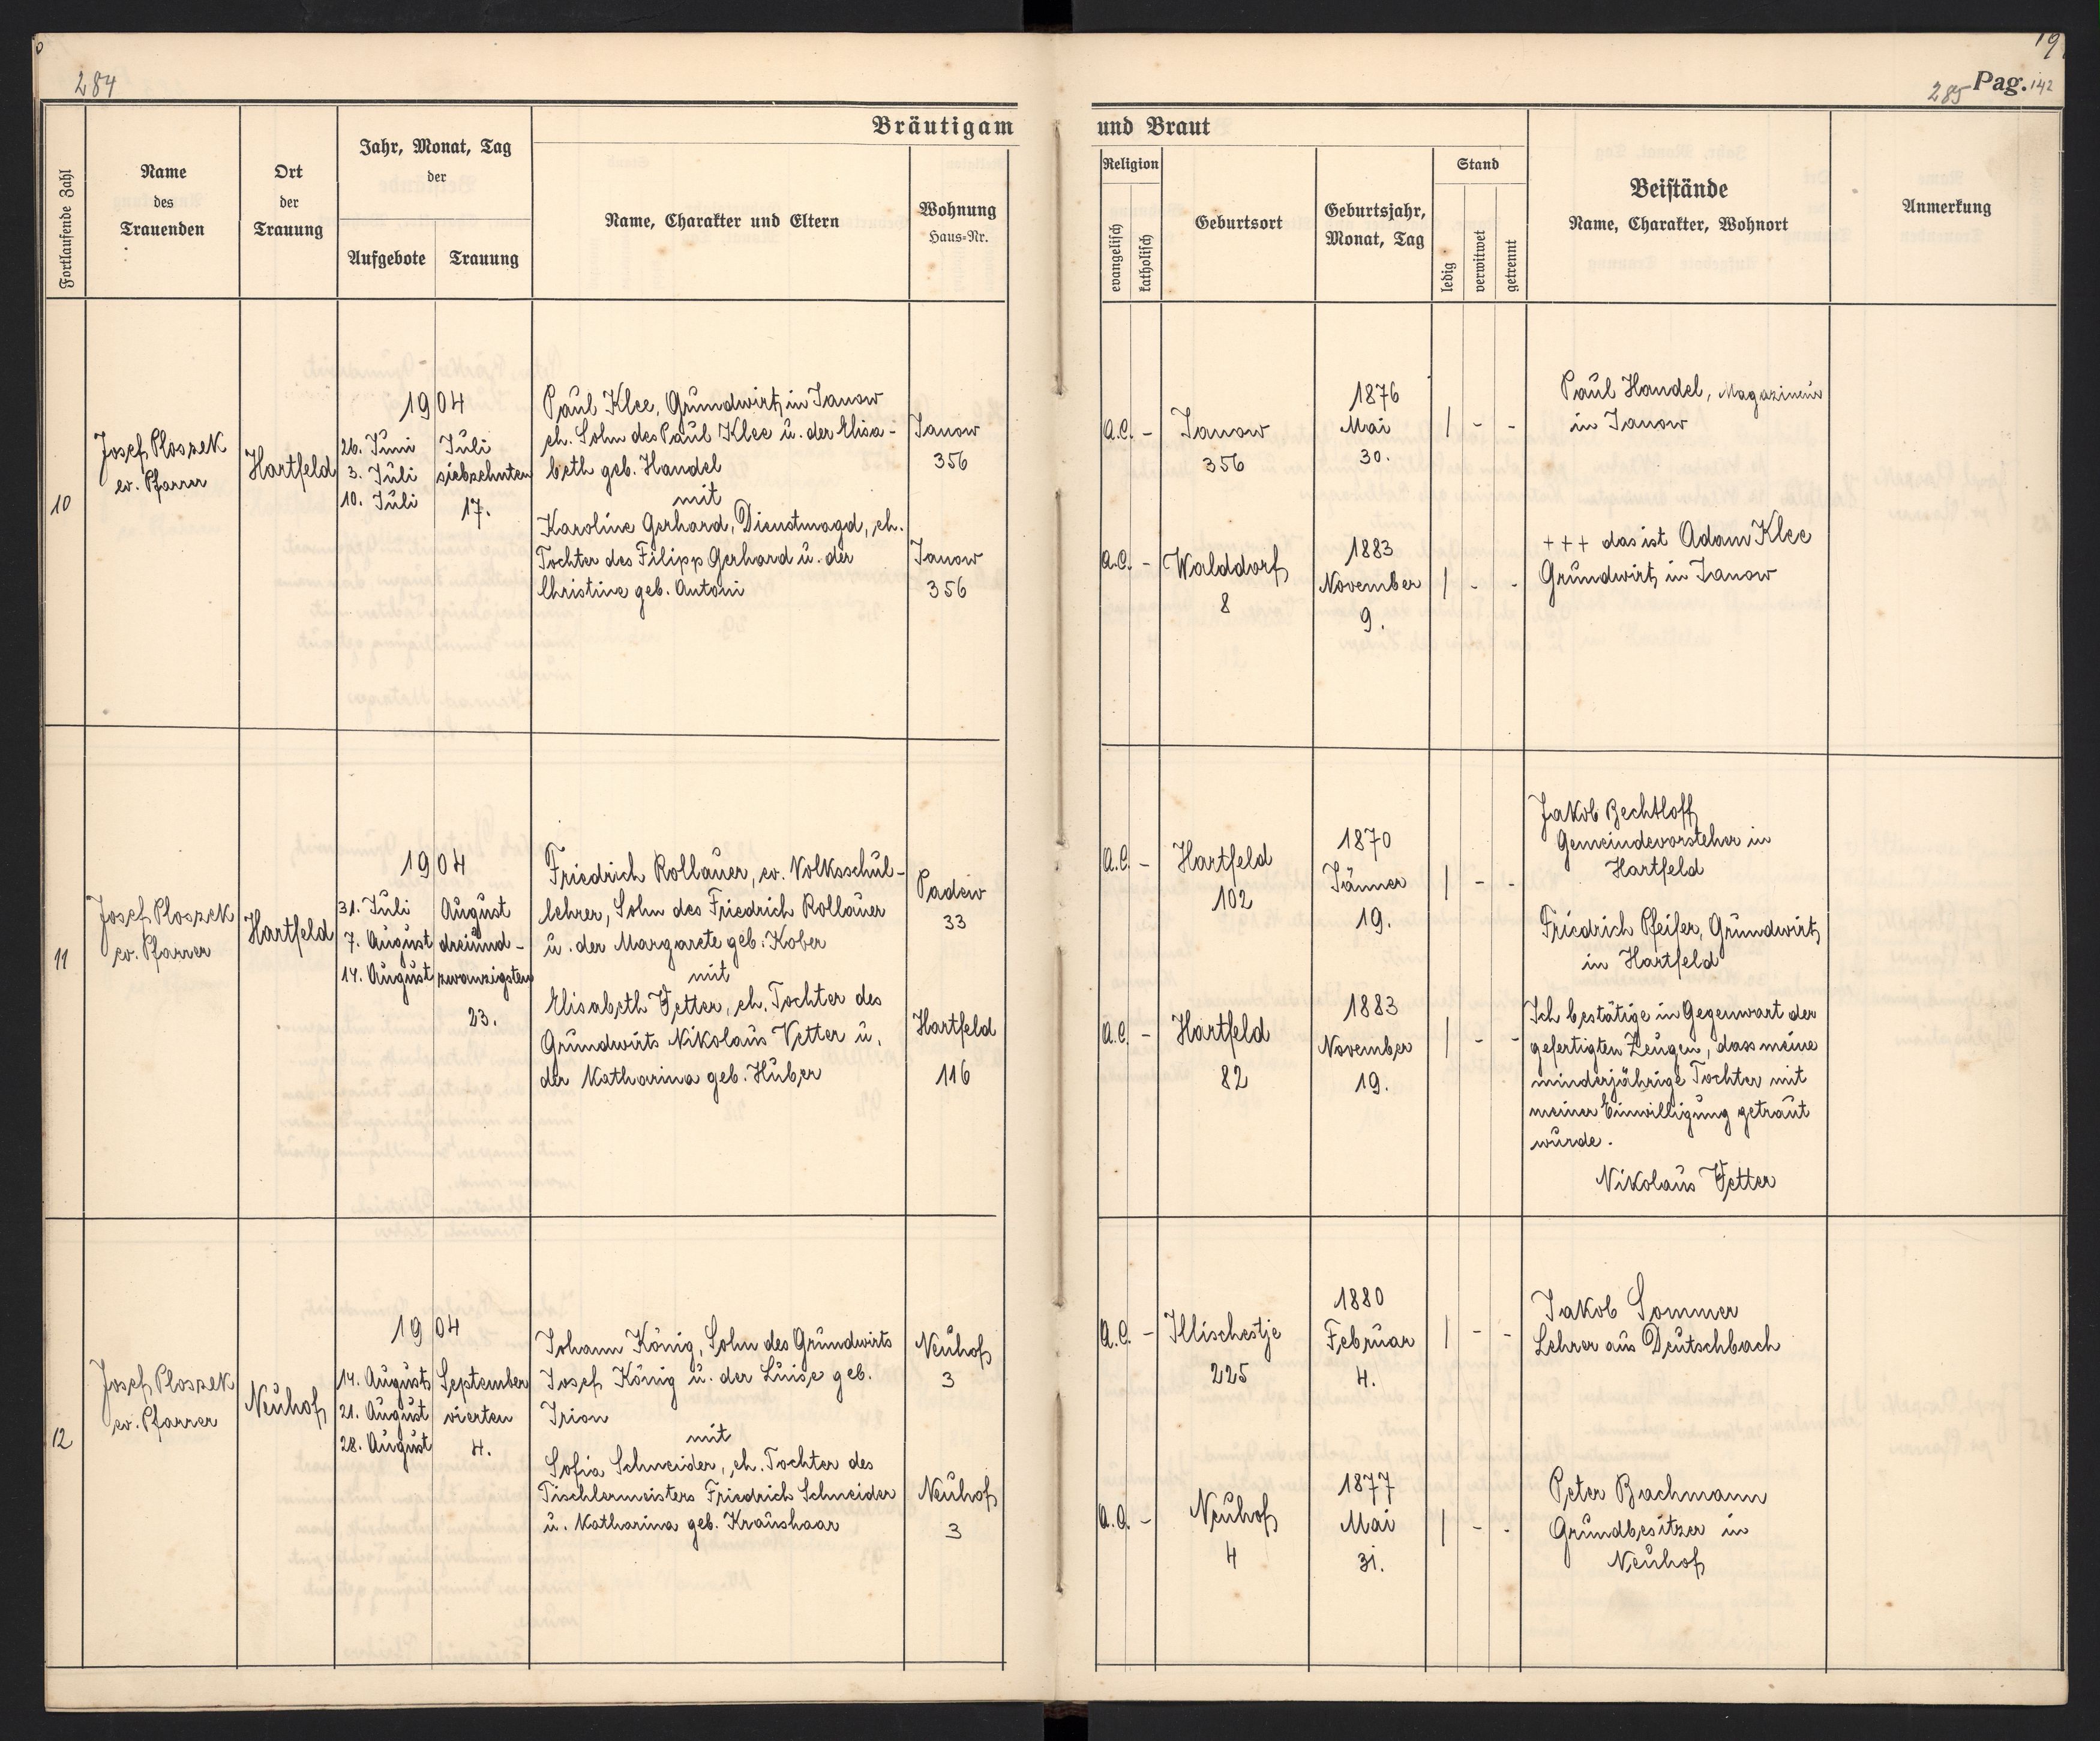 284
19
285 Pag. 142
Bräutigam und Braut
Fortlaufende Zahl
Name
des
Trauenden
Ort
der
Trauung
Jahr, Monat, Tag
der
Aufgebote
Trauung
Name, Charakter und Eltern
Wohnung
Haus=Nr.
Religion
evangelisch
katholisch
Geburtsort
Geburtsjahr,
Monat, Tag
Stand
ledig
verwitwet
getrennt
Beistände
Name, Charakter, Wohnort
Anmerkung
10
Josef Ploszek
ev. Pfarrer
Hartfeld
1904
26. Juni
3. Juli
10. Juli
Juli
siebzehnten
17.
Paul Klee, Grundwirt in Janow
eh. Sohn des Paul Klee u. der Elisa-
beth geb. Handel
mit
Karoline Gerhard, Dienstmagd, eh.
Tochter des Filipp Gerhard u. der
Christine geb. Antoni
Janow
356
Janow
356
A.C. -
Janow
356
1876
Mai
30.
| - -
A.C. -
Walddorf
8
1883
November
9.
| - -
Paul Handel, Magazineur
in Janow
+++ das ist Adam Klee
Grundwirt in Janow
11
Josef Ploszek
ev. Pfarrer
Hartfeld
1904
31. Juli
7. August
14. August
August
dreiund-
zwanzigsten
23.
Friedrich Rollauer, ev. Volksschul-
lehrer, Sohn des Friedrich Rollauer
u. der Margarete geb. Kober
mit
Elisabeth Vetter, eh. Tochter des
Grundwirts Nikolaus Vetter u.
der Katharina geb. Huber
Padew
33
Hartfeld
116
A.C. -
Hartfeld
102
1870
Jänner
19.
| - -
A.C. -
Hartfeld
82
1883
November
19.
| - -
Jakob Bechtloff
Gemeindevorsteher in
Hartfeld
Friedrich Pfeifer, Grundwirt
in Hartfeld
Ich bestätige in Gegenwart der
gefertigten Zeugen, dass meine
minderjährige Tochter mit
meiner Einwilligung getraut
wurde.
Nikolaus Vetter
12
Josef Ploszek
ev. Pfarrer
Neuhof
1904
14. August
21. August
28. August
September
vierten
4.
Johann König, Sohn des Grundwirts
Josef König u. der Luise geb.
Irion
mit
Sofia Schneider, eh. Tochter des
Tischlermeisters Friedrich Schneider
u. Katharina geb. Kraushaar
Neuhof
3
Neuhof
3
A.C. -
Illischestje
225
1880
Februar
4.
| - -
A.C. -
Neuhof
4
1877
Mai
31.
| - -
Jakob Sommer
Lehrer aus Deutschbach
Peter Bachmann
Grundbesitzer in
Neuhof